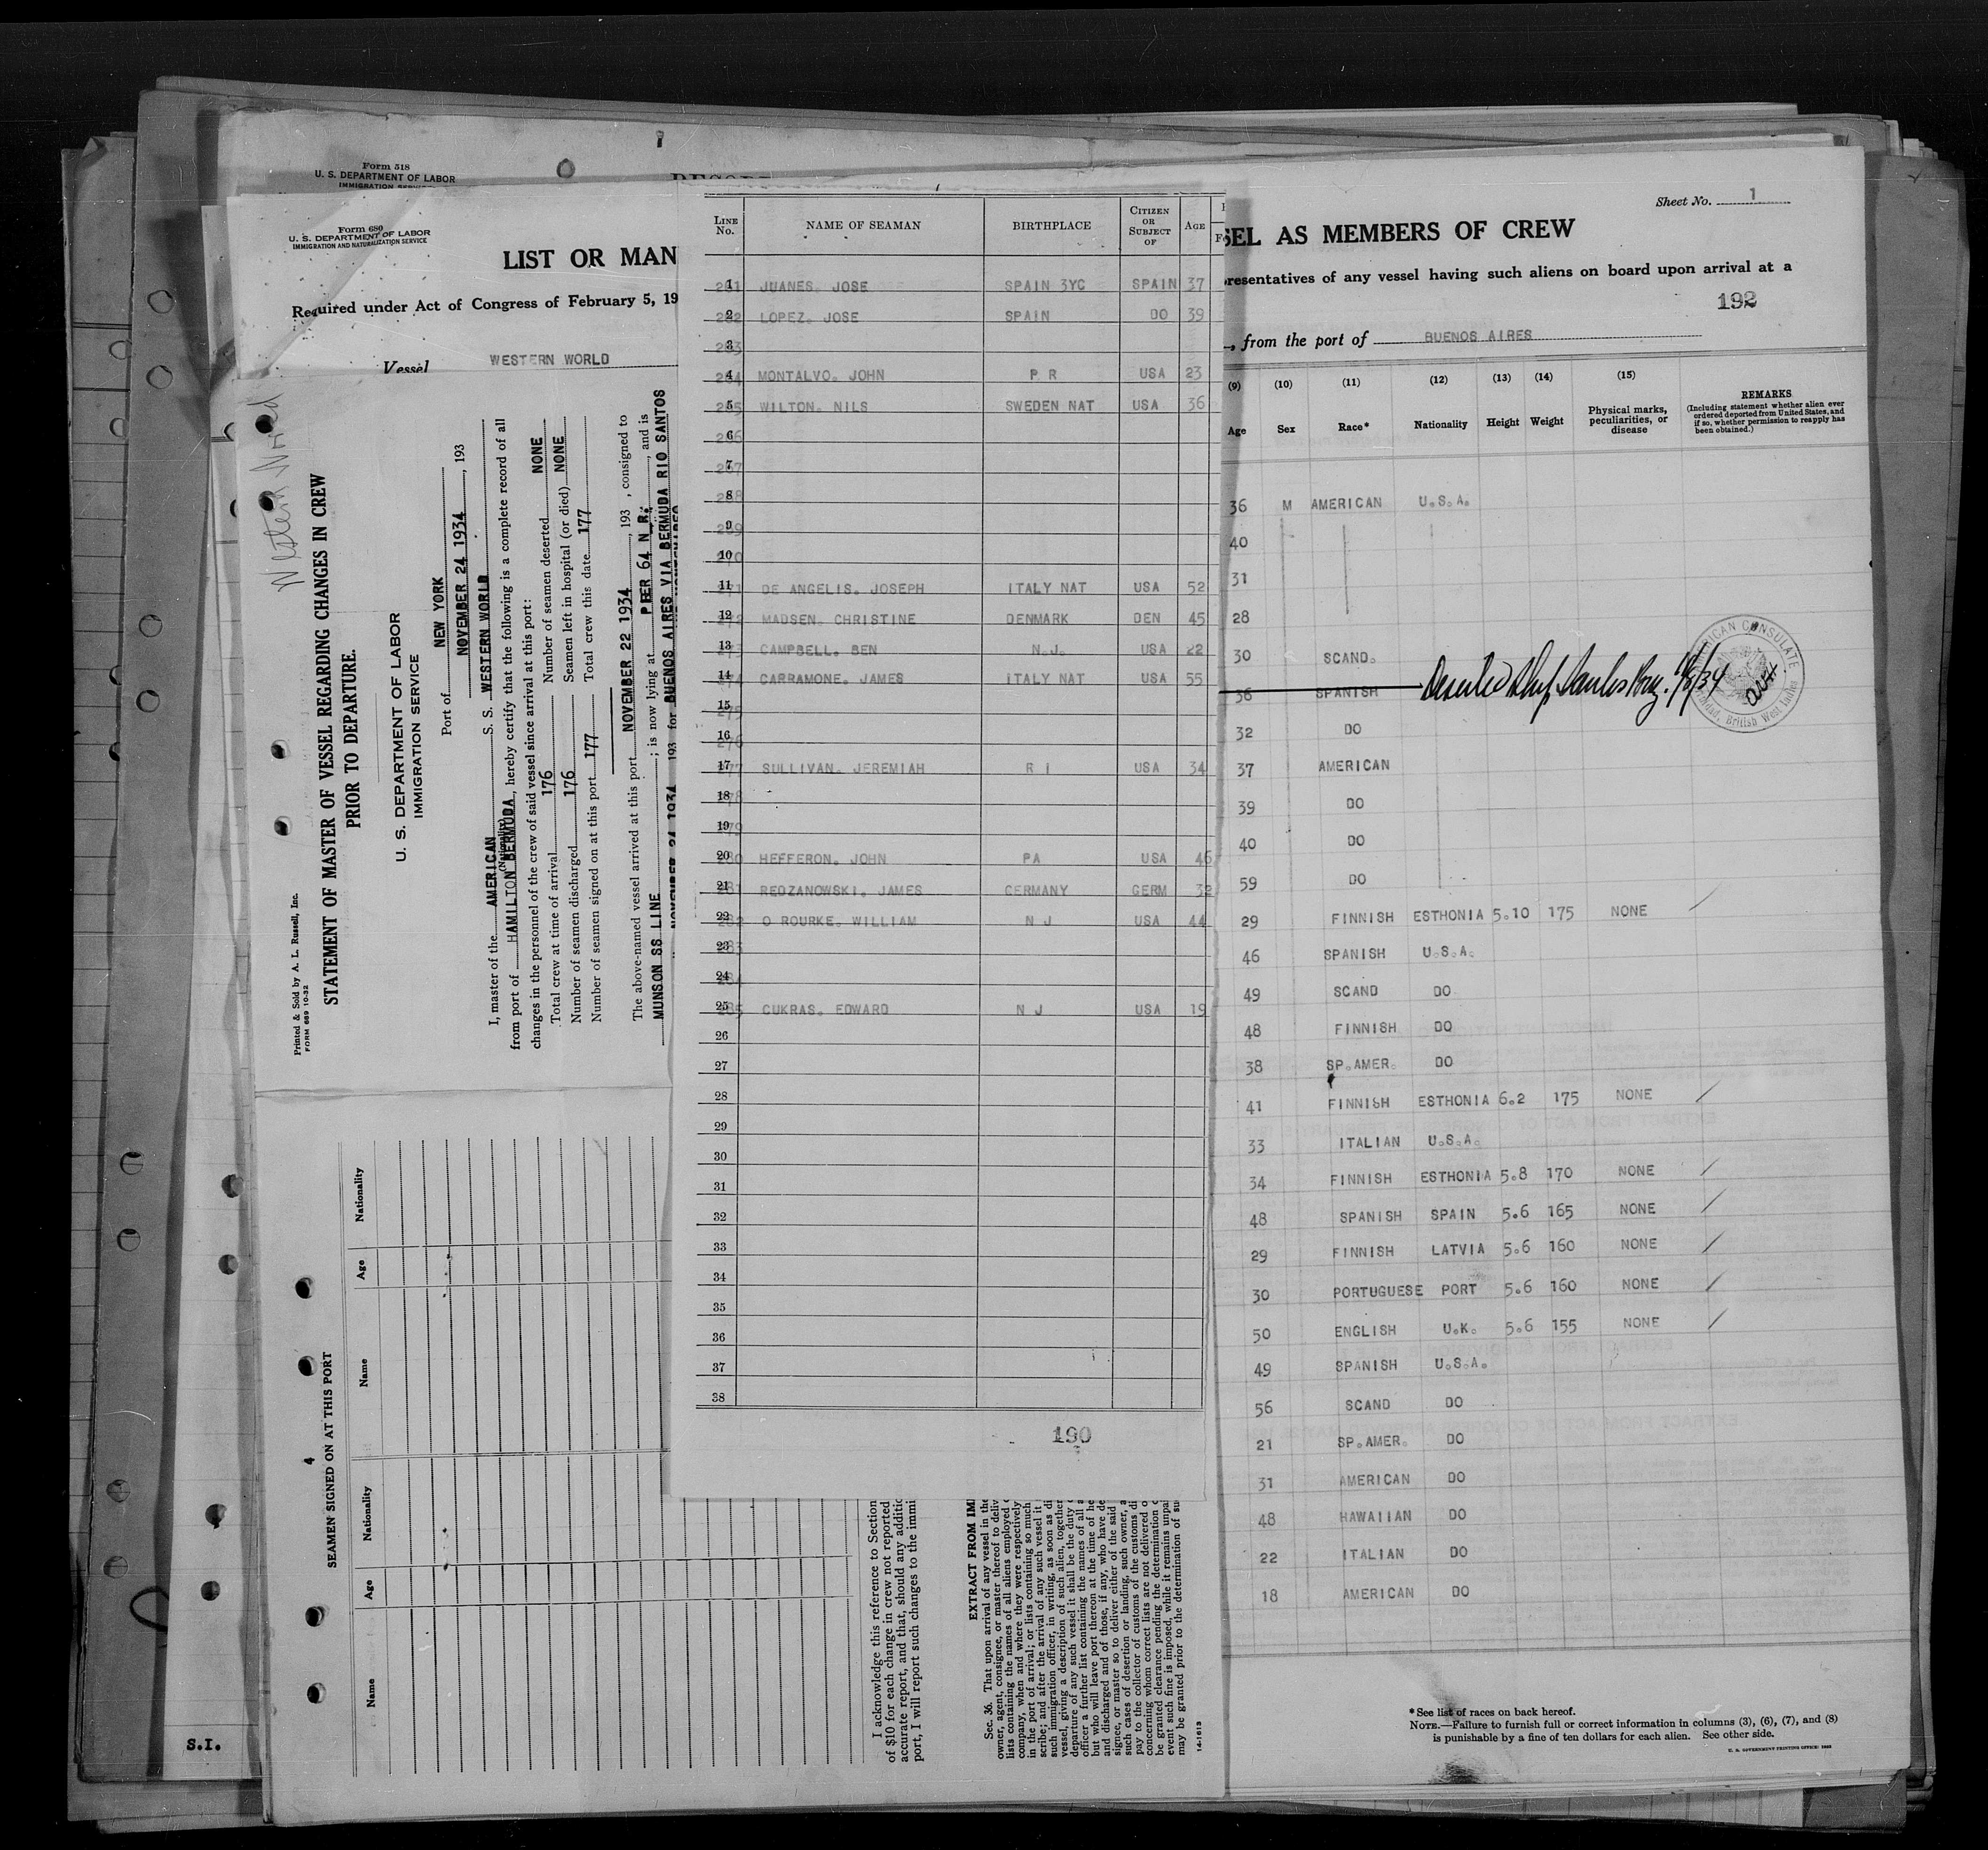 Form 518
U. S. DEPARTMENT OF LABOR
IMMIGRATION
Form 680
U. S. DEPARTMENT OF LABOR
IMMIGRATION AND NATURALIZATION SERVICE
LIST OR MAN
Required under Act of Congress of February 5, 19
Vessel WESTERN WORLD
Western World
Printed & Sold by A. L. Russell, Inc.
FORM 689 10-32
STATEMENT OF MASTER OF VESSEL REGARDING CHANGES IN CREW
PRIOR TO DEPARTURE.
U. S. DEPARTMENT OF LABOR
IMMIGRATION SERVICE
Port of NEW YORK
NOVEMBER 24 1934, 193
I, master of the AMERICAN S. S. WESTERN WORLD
(Nationality)
from port of HAMILTON BERMUDA, hereby certify that the following is a complete record of all
changes in the personnel of the crew of said vessel since arrival at this port:
Total crew at time of arrival 176 Number of seamen deserted NONE
Number of seamen discharged 176 Seamen left in hospital (or died) NONE
Number of seamen signed on at this port 177 Total crew this date 177
The above-named vessel arrived at this port NOVEMBER 22 1934, 193 , consigned to
MUNSON SS LINE ; is now lying at PIER 64 N R:, and is
NOVEMBER 24 1934 193 for BUENOS AIRES VIA BERMUDA RIO SANTOS
4
SEAMEN SIGNED ON AT THIS PORT
Name Age Nationality Name Age Nationality
I acknowledge this reference to Section
of $10 for each change in crew not reported
accurate report, and that, should any additic
port, I will report such changes to the immi
EXTRACT FROM IMI
Sec. 36. That upon arrival of any vessel in the
owner, agent, consignee, or master thereof to deliv
lists containing the names of all aliens employed
company, when and where they were respectively
in the port of arrival; or lists containing so much
scribe; and after the arrival of any such vessel it
such immigration officer, in writing, as soon as di
vessel, giving a description of such alien, together
departure of any such vessel it shall be the duty
officer a further list containing the names of all a
but who will leave port thereon at the time of he
and discharged and of those, if any, who have de
signee, or master so to deliver either of the said
such cases of desertion or landing, such owner, a
pay to the collector of customs of the customs di
concerning whom correct lists are not delivered o
be granted clearance pending the determination
event such fine is imposed, while it remains unpai
may be granted prior to the determination of su
14-1613
S.I.
LINE No. NAME OF SEAMAN BIRTHPLACE CITIZEN OR SUBJECT OF AGE
1 JUANES. JOSE SPAIN 3YC SPAIN 37
2 LOPEZ. JOSE SPAIN DO 39
3
4 MONTALVO. JOHN P R USA 23
5 WILTON. NILS SWEDEN NAT USA 36
6
7
8
9
10
11 DE ANGELIS. JOSEPH ITALY NAT USA 52
12 MADSEN. CHRISTINE DENMARK DEN 45
13 CAMPBELL. BEN N.J. USA 22
14 CARRAMONE. JAMES ITALY NAT USA 55
15
16
17 SULLIVAN. JEREMIAH R I USA 34
18
19
20 HEFFERON. JOHN PA USA 46
21 REDZANOWSKI. JAMES GERMANY GERM 32
22 O ROURKE. WILLIAM N J USA 44
23
24
25 CUKRAS. EDWARD N J USA 19
26
27
28
29
30
31
32
33
34
35
36
37
38
190
Sheet No. 1
SEL AS MEMBERS OF CREW
resentatives of any vessel having such aliens on board upon arrival at a
192
, from the port of BUENOS AIRES
(9) (10) (11) (12) (13) (14) (15)
Age Sex Race* Nationality Height Weight Physical marks, peculiarities, or disease
REMARKS
(Including statement whether alien ever
ordered deported from United States, and
if so, whether permission to reapply has
been obtained.)
36 M AMERICAN U.S.A.
40
31
28
30 SCAND.
36 SPANISH Deserted Ship Santos Braz.
AMERICAN CONSULATE
Trinidad, British West Indies
32 DO
37 AMERICAN
39 DO
40 DO
59 DO
29 FINNISH ESTHONIA 5.10 175 NONE /
46 SPANISH U.S.A.
49 SCAND DO
48 FINNISH DO
38 SP.AMER. DO
41 FINNISH ESTHONIA 6.2 175 NONE /
33 ITALIAN U.S.A.
34 FINNISH ESTHONIA 5.8 170 NONE /
48 SPANISH SPAIN 5.6 165 NONE /
29 FINNISH LATVIA 5.6 160 NONE /
30 PORTUGUESE PORT 5.6 160 NONE /
50 ENGLISH U.K. 5.6 155 NONE /
49 SPANISH U.S.A.
56 SCAND DO
21 SP.AMER. DO
31 AMERICAN DO
48 HAWAIIAN DO
22 ITALIAN DO
18 AMERICAN DO
*See list of races on back hereof.
NOTE.—Failure to furnish full or correct information in columns (3), (6), (7), and (8)
is punishable by a fine of ten dollars for each alien. See other side.